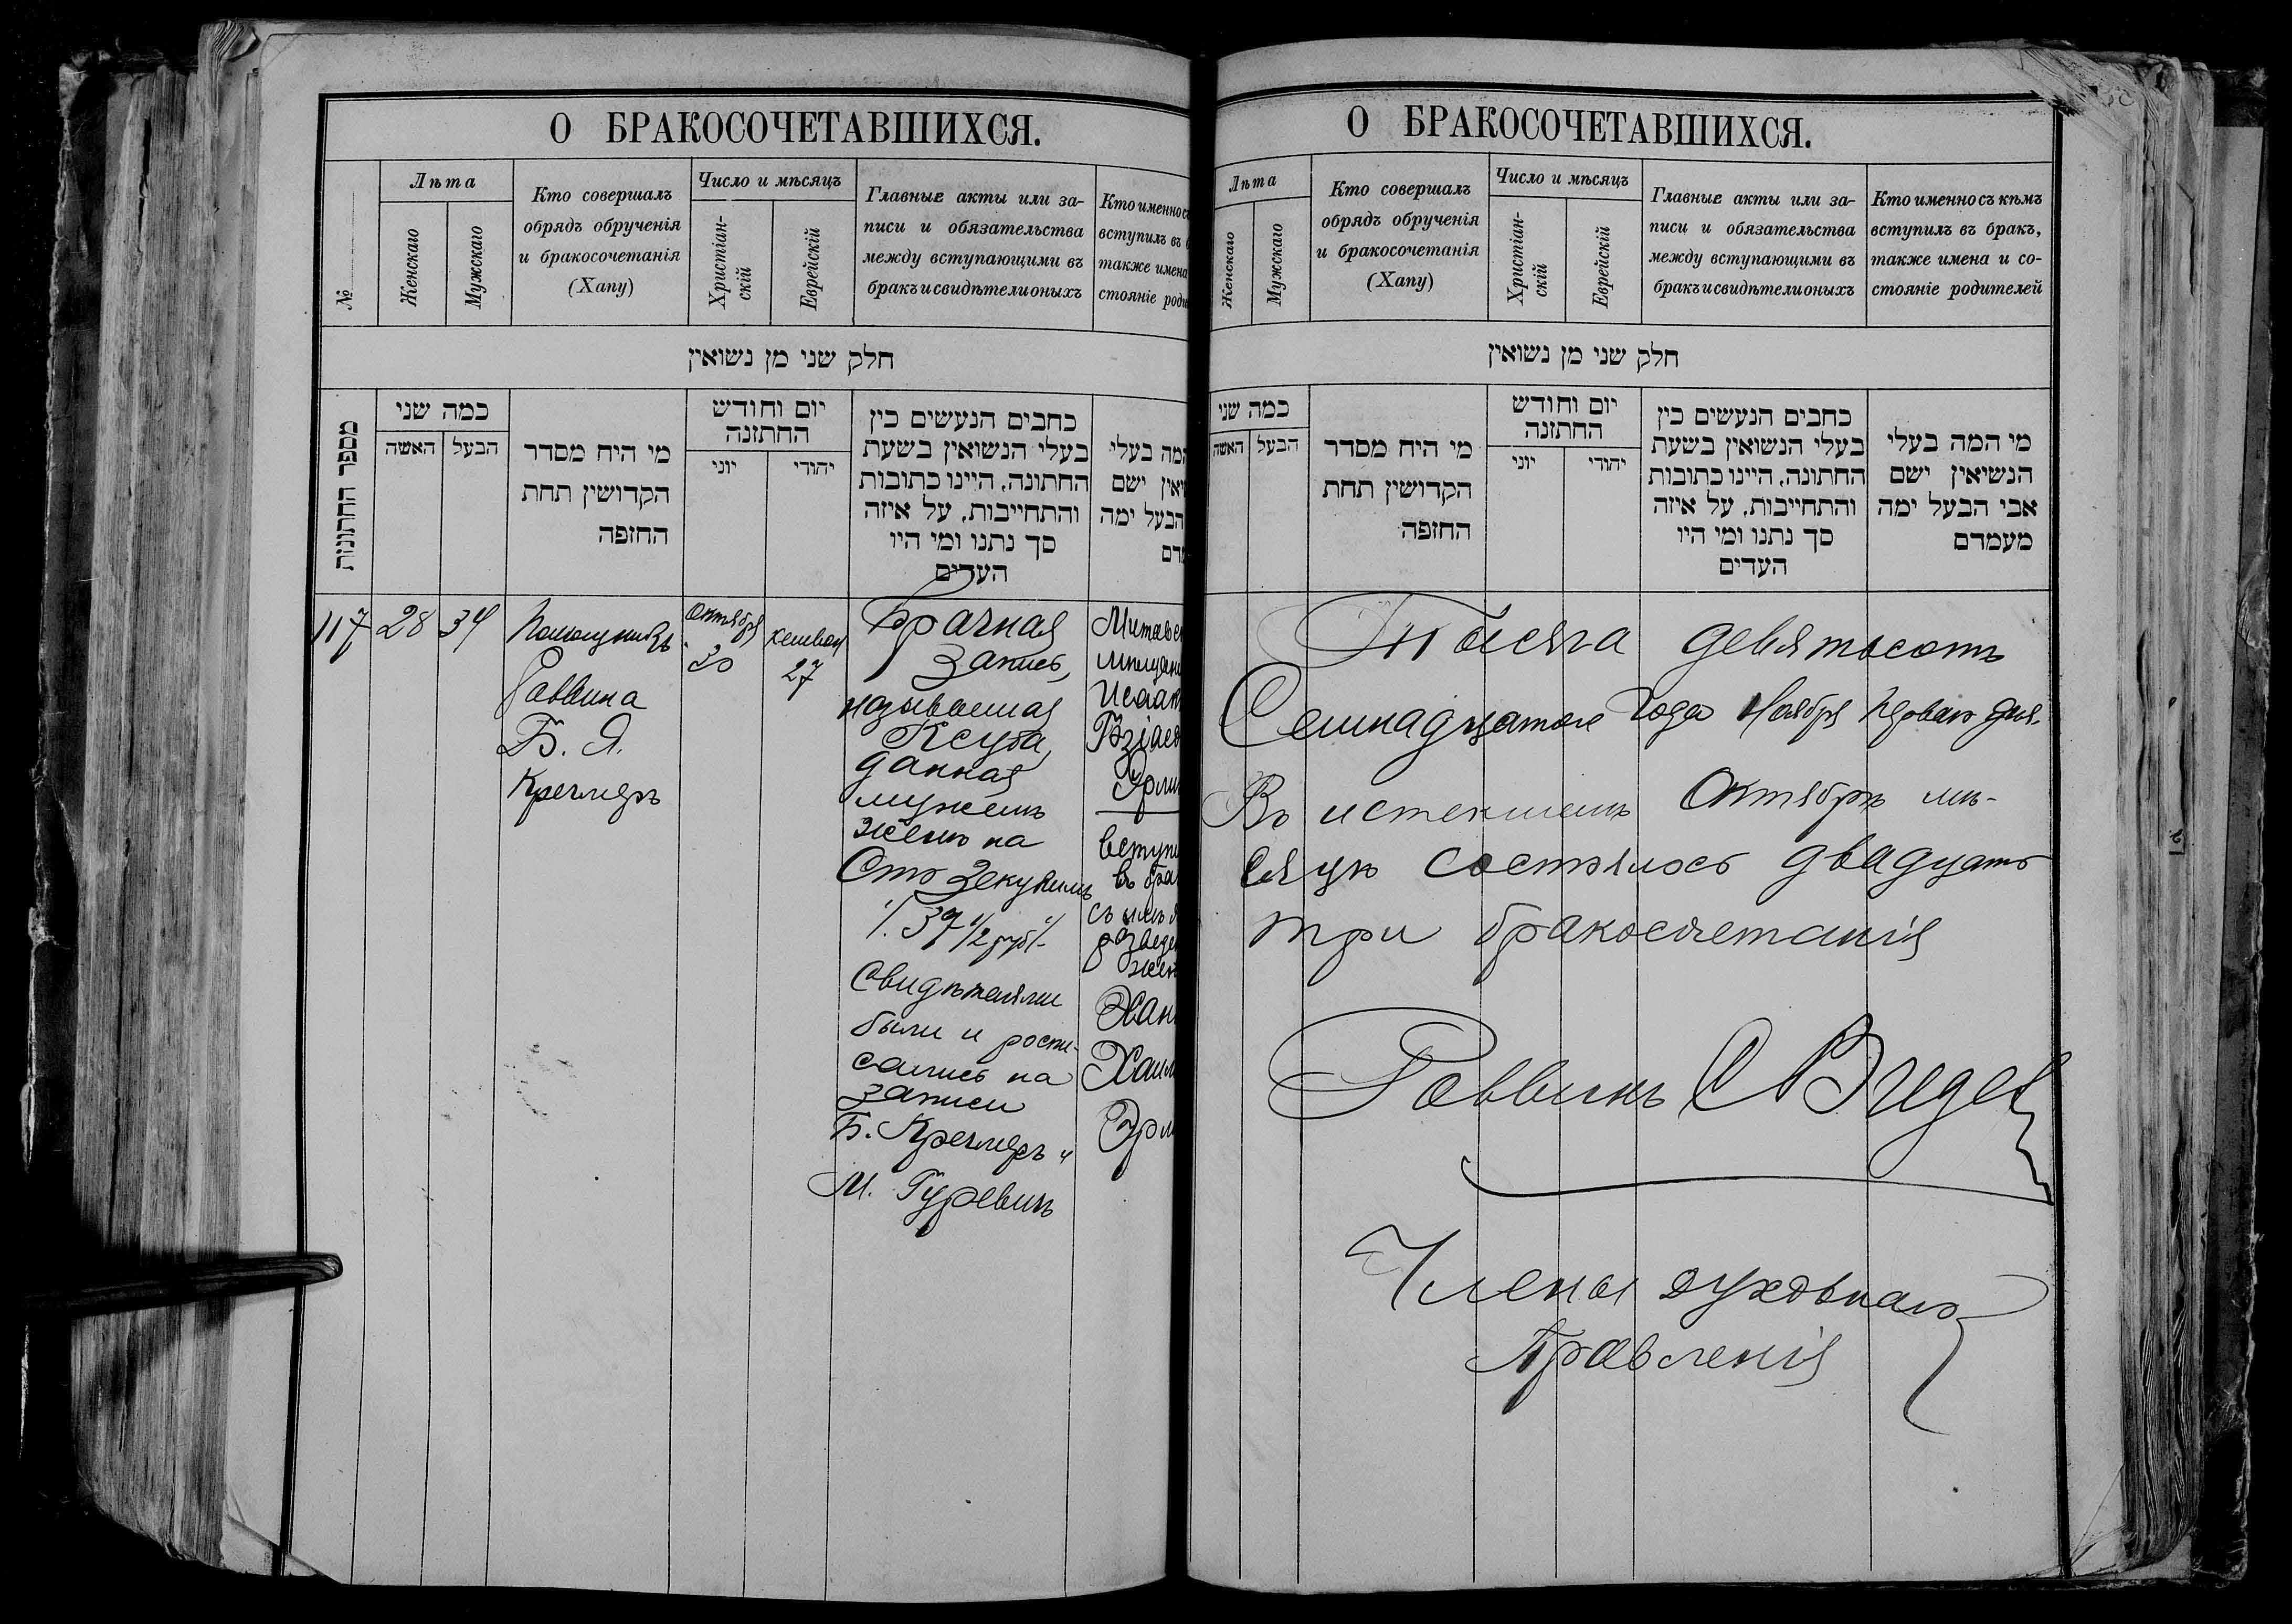 О БРАКОСОЧЕТАВШИХСЯ.
№
Лѣта
Женскаго
Мужскаго
Кто совершалъ
обрядъ обрученія
и бракосочетанія
(Хапу)
Число и мѣсяцъ
Христіан-
скій
Еврейскій
Главные акты или за-
писи и обязательства
между вступающими въ
бракъ и свидѣтели оныхъ
Кто именно съ
вступилъ въ
также имена
стояніе роди
חלק שני מן נשואין
מספר החתונות
כמה שני
האשה
הבעל
מי היח מסדר
הקדושין תחת
החזפה
יום וחודש
החתזנה
יוני
יהודי
כחבים הנעשים כין
בעלי הנשואין בשעת
החתונה, היינו כתובות
והתחייבות, על איזה
סך נתנו ומי היו
העדים
המה בעלי
יאין ישם
הבעל ימה
מדם
117
28
34
Помощникъ
Раввина
Б. Я.
Кречмеръ
Октября
30
Кешван
27
Брачная
запись,
называемая
Ксуба,
данная
мужемъ
женѣ на
Сто Зекукимъ
37 1/2 руб
Свидѣтелями
были и роспи-
сались на
записи
Б. Кречмеръ и
М. Гуревичъ
Митавс
Исаак
вступи
въ бра
съ
жен
Хан
Хаим
О БРАКОСОЧЕТАВШИХСЯ.
Лѣта
Женскаго
Мужскаго
Кто совершалъ
обрядъ обрученія
и бракосочетанія
(Хапу)
Число и мѣсяцъ
Христіан-
скій
Еврейскій
Главные акты или за-
писи и обязательства
между вступающими въ
бракъ и свидѣтели оныхъ
Кто именно съ кѣмъ
вступилъ въ бракъ,
также имена и со-
стояніе родителей
חלק שני מן נשואין
כמה שני
האשה
הבעל
מי היח מסדר
הקדושין תחת
החזפה
יום וחודש
החתזנה
יוני
יהודי
כחבים הנעשים כין
בעלי הנשואין בשעת
החתונה, היינו כתובות
והתחייבות, על איזה
סך נתנו ומי היו
העדים
מי המה בעלי
הנשיאין ישם
אבי הבעל ימה
מעמדם
Тысяча девятьсотъ
Семнадцатаго года Ноября перваго дня.
Въ истекшемъ Октябрѣ мѣ-
сяцѣ состоялось двадцать
три бракосочетанія
Раввинъ
Члены духовнаго
Правленія